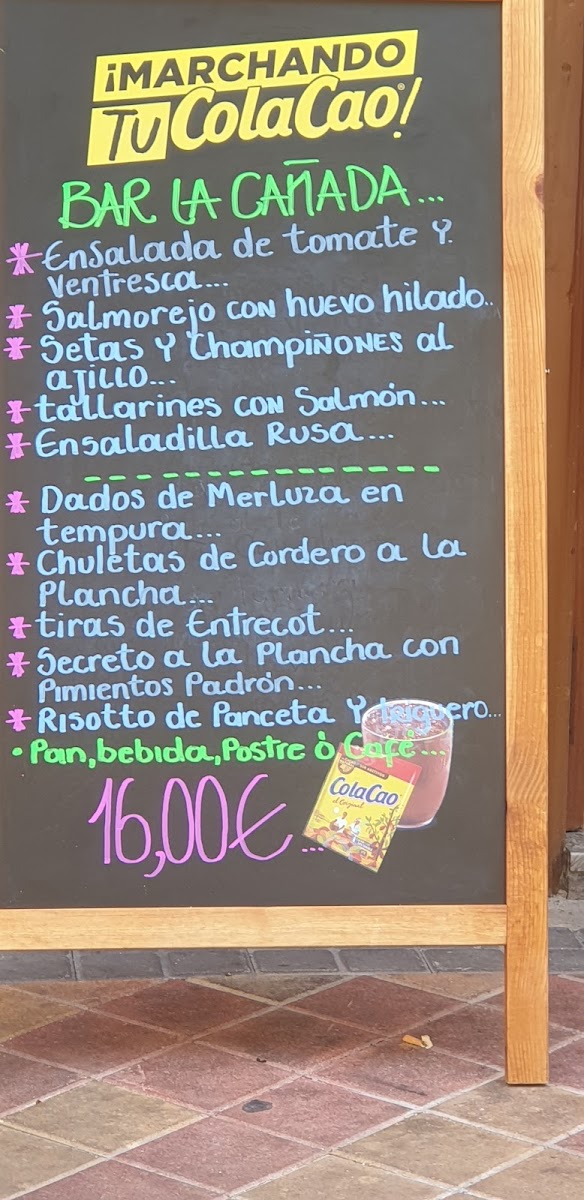 ¡MARCHANDO
TU ColaCao!
BAR LA CAÑADA...
* Ensalada de tomate y
ventresca...
* Salmorejo con huevo hilado..
* Setas y Champiñones al
ajillo...
* tallarines con Salmón...
* Ensaladilla Rusa...
* Dados de Merluza en
tempura...
* Chuletas de Cordero a la
Plancha...
* tiras de Entrecot...
* Secreto a la Plancha con
Pimientos Padrón...
* Risotto de Panceta y triguero...
• Pan, bebida, Postre ò Café...
16,00€...
ColaCao
el Original